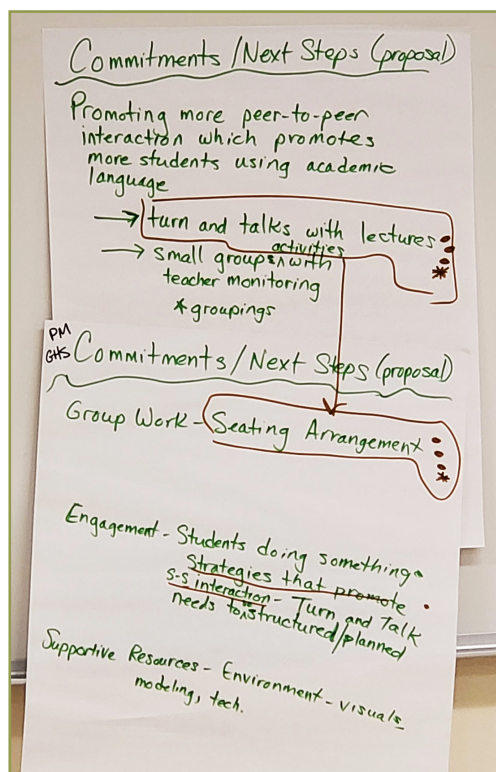 Commitments/Next Steps (proposal)
Promoting more peer-to-peer
interaction which promotes
more students using academic
language
→ turn and talks with lectures
activities
→ small groups ^ with
teacher monitoring
* groupings
PM
GHS
Commitments/Next Steps (proposal)
Group Work - Seating Arrangement
Engagement - Students doing something
Strategies that promote
S-S interaction - Turn and Talk
needs to be structured/planned
Supportive Resources - Environment - visuals
modeling, tech.